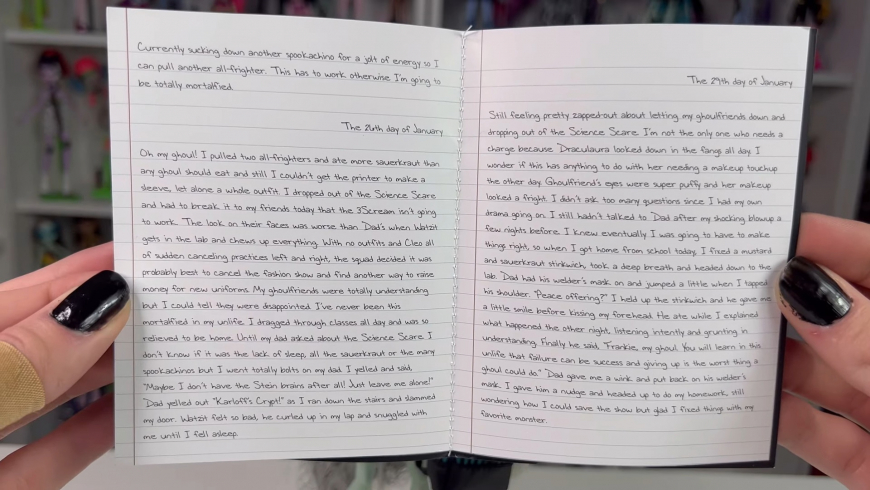 Currently sucking down another spookachino for a jolt of energy so I
can pull another all-frighter. This has to work otherwise I'm going to
be totally mortalfied.
The 26th day of January
Oh my ghoul! I pulled two all-frighters and ate more sauerkraut than
any ghoul should eat and still I couldn't get the printer to make a
sleeve, let alone a whole outfit. I dropped out of the Science Scare
and had to break it to my friends today that the 3Scream isn't going
to work. The look on their faces was worse than Dad's when Watzit
gets in the lab and chews up everything. With no outfits and Cleo all
of sudden canceling practices left and right, the squad decided it was
probably best to cancel the fashion show and find another way to raise
money for new uniforms. My ghoulfriends were totally understanding
but I could tell they were disappointed. I've never been this
mortalfied in my unlife. I dragged through classes all day and was so
relieved to be home. Until my dad asked about the Science Scare. I
don't know if it was the lack of sleep, all the sauerkraut or the many
spookachinos but I went totally bolts on my dad. I yelled and said,
"Maybe I don't have the Stein brains after all! Just leave me alone!"
Dad yelled out "Karloff's Crypt!" as I ran down the stairs and slammed
my door. Watzit felt so bad, he curled up in my lap and snuggled with
me until I fell asleep.
The 29th day of January
Still feeling pretty zapped-out about letting my ghoulfriends down and
dropping out of the Science Scare. I'm not the only one who needs a
charge because Draculaura looked down in the fangs all day. I
wonder if this has anything to do with her needing a makeup touchup
the other day. Ghoulfriend's eyes were super puffy and her makeup
looked a fright. I didn't ask too many questions since I had my own
drama going on. I still hadn't talked to Dad after my shocking blowup a
few nights before. I knew eventually I was going to have to make
things right, so when I got home from school today, I fixed a mustard
and sauerkraut stinkwich, took a deep breath and headed down to the
lab. Dad had his welder's mask on and jumped a little when I tapped
his shoulder. "Peace offering?" I held up the stinkwich and he gave me
a little smile before kissing my forehead. He ate while I explained
what happened the other night, listening intently and grunting in
understanding. Finally he said, "Frankie, my ghoul. You will learn in this
unlife that failure can be success and giving up is the worst thing a
ghoul could do." Dad gave me a wink and put back on his welder's
mask. I gave him a nudge and headed up to do my homework, still
wondering how I could save the show but glad I fixed things with my
favorite monster.